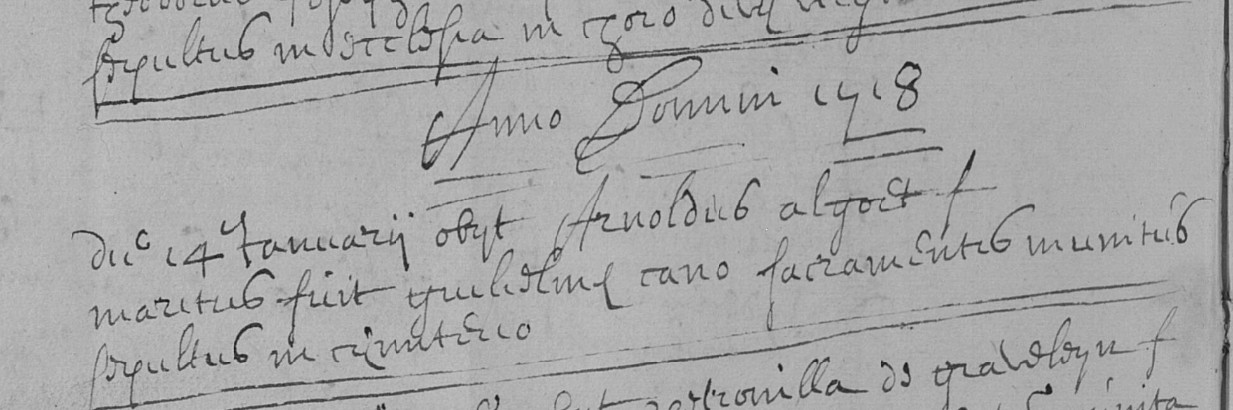 sepultus in ecclesia in choro
Anno Domini 1718
die 14 Januarij obyt Arnoldus algoet f
maritus fuit guilielmq cano sacramentis munitus
sepultus in cimiterio
petronilla de f